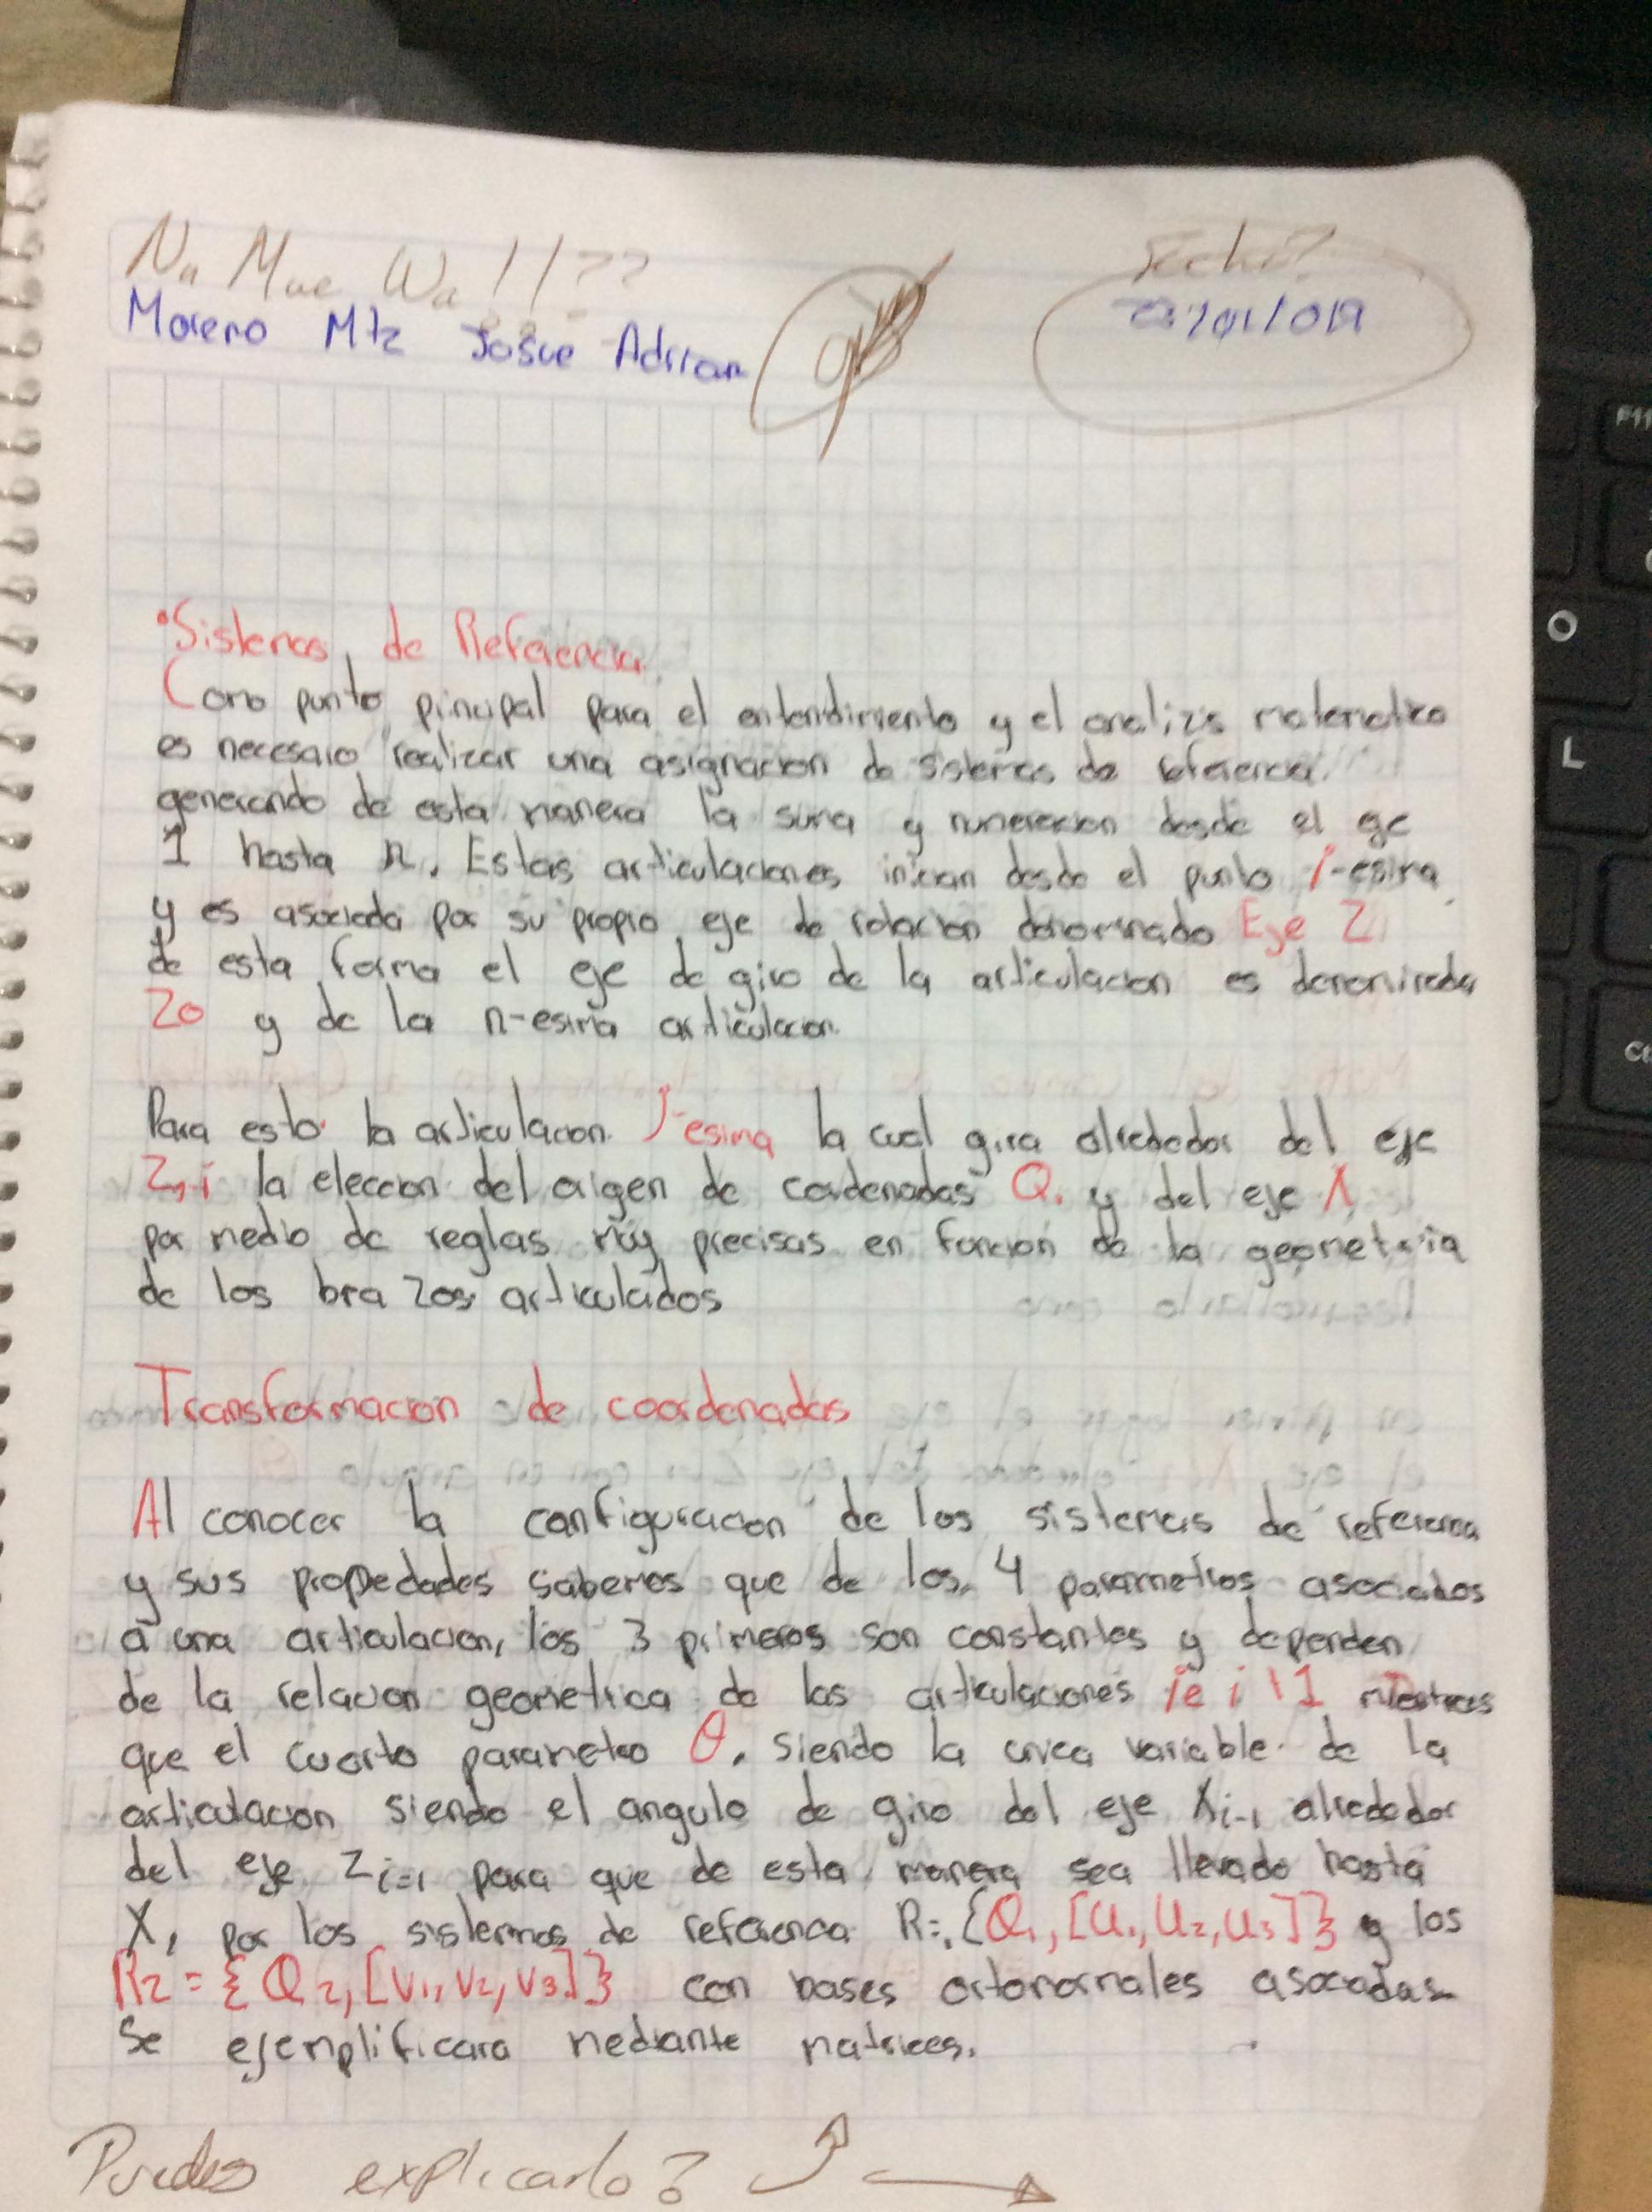 Moreno Mtz Josue Adrian
/01/019
•Sistemas de Referencia
Como punto pincipal para el entendimiento y el analizis matematico
es necesaio realizar una asignacion de sistemas de referencia
generando de esta manera la suma y numeracion desde el eje
1 hasta n. Estas articulaciones inician desde el punto i-esima
y es asociada por su propio eje de rotacion denominado Eje Z
de esta forma el eje de giro de la articulacion es denominada
Z0 y de la n-esima articulacion.
Para esto la articulacion i-esima la cual gira alrededor del eje
la eleccion del origen de cordenadas Q. y del eje
por medio de reglas muy precisas en funcion de la geometria
de los bra zos articulados
Transformacion de coordenadas
Al conocer la configuracion de los sistemas de referencia
y sus propedades sabemos que de los 4 parametros asociados
a una articulacion, los 3 primeros son constantes y dependen
de la relacion geometrica de las articulaciones i e i 1 mientras
que el cuarto parametro θ, siendo la unica variable de la
articulacion siendo el angulo de giro del eje Xi-1 alrededor
del eje Zi-1 para que de esta manera sea llevado hasta
X, por los sistemas de referenca R=,{Q1,[U1,U2,U3]} y los
R2={Q2,[V1,V2,V3]} con bases ortonormales asocadas
Se ejemplificara mediante matrices.
Puedes explicarlo?